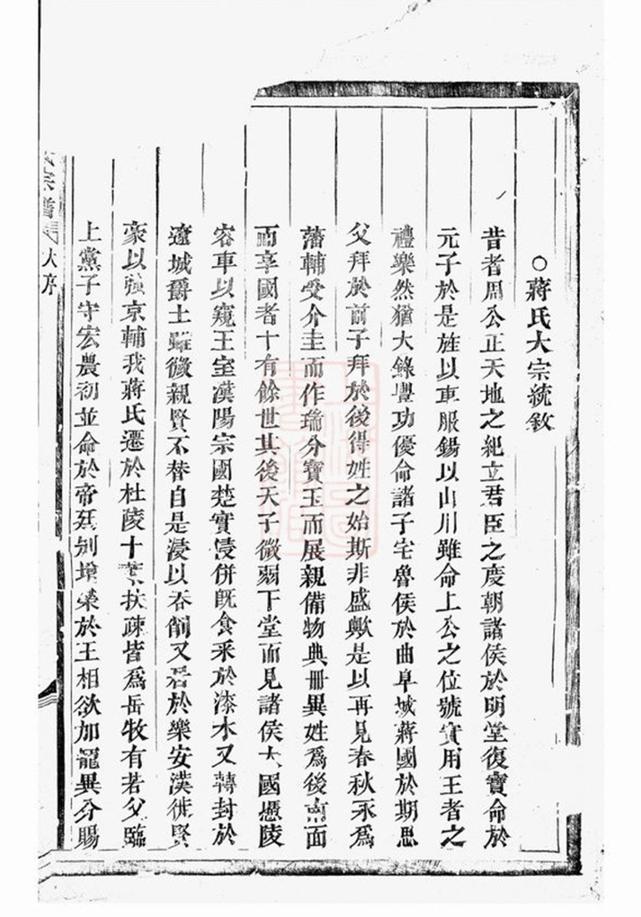 ○蔣氏大宗統敘
昔者周公正天地之紀立君臣之度朝諸侯於明堂復寶命於
元子於是旌以車服錫以山川雖命上公之位號實用王者之
禮樂然猶大錄豐功優命諸子宅魯侯於曲阜城蔣國於期思
父拜於前子拜於後得姓之始斯非盛歟是以再見春秋永為
藩輔受介圭而作瑞分寶玉而展親備物典冊異姓為後南面
而享國者十有餘世其後天子微弱下堂而見諸侯大國憑陵
容車以窺王室漢陽宗國楚實侵併旣食采於漆水又轉封於
遼城爵土雖微親賢不替自是浸以吞削又居於樂安漢徙賢
豪以強京輔我蔣氏遷於杜陵十葉扶疎皆為岳牧有若父臨
上黨子守宏農初並命於帝廷別增榮於王相欲加寵異分賜
氏宗譜 大序